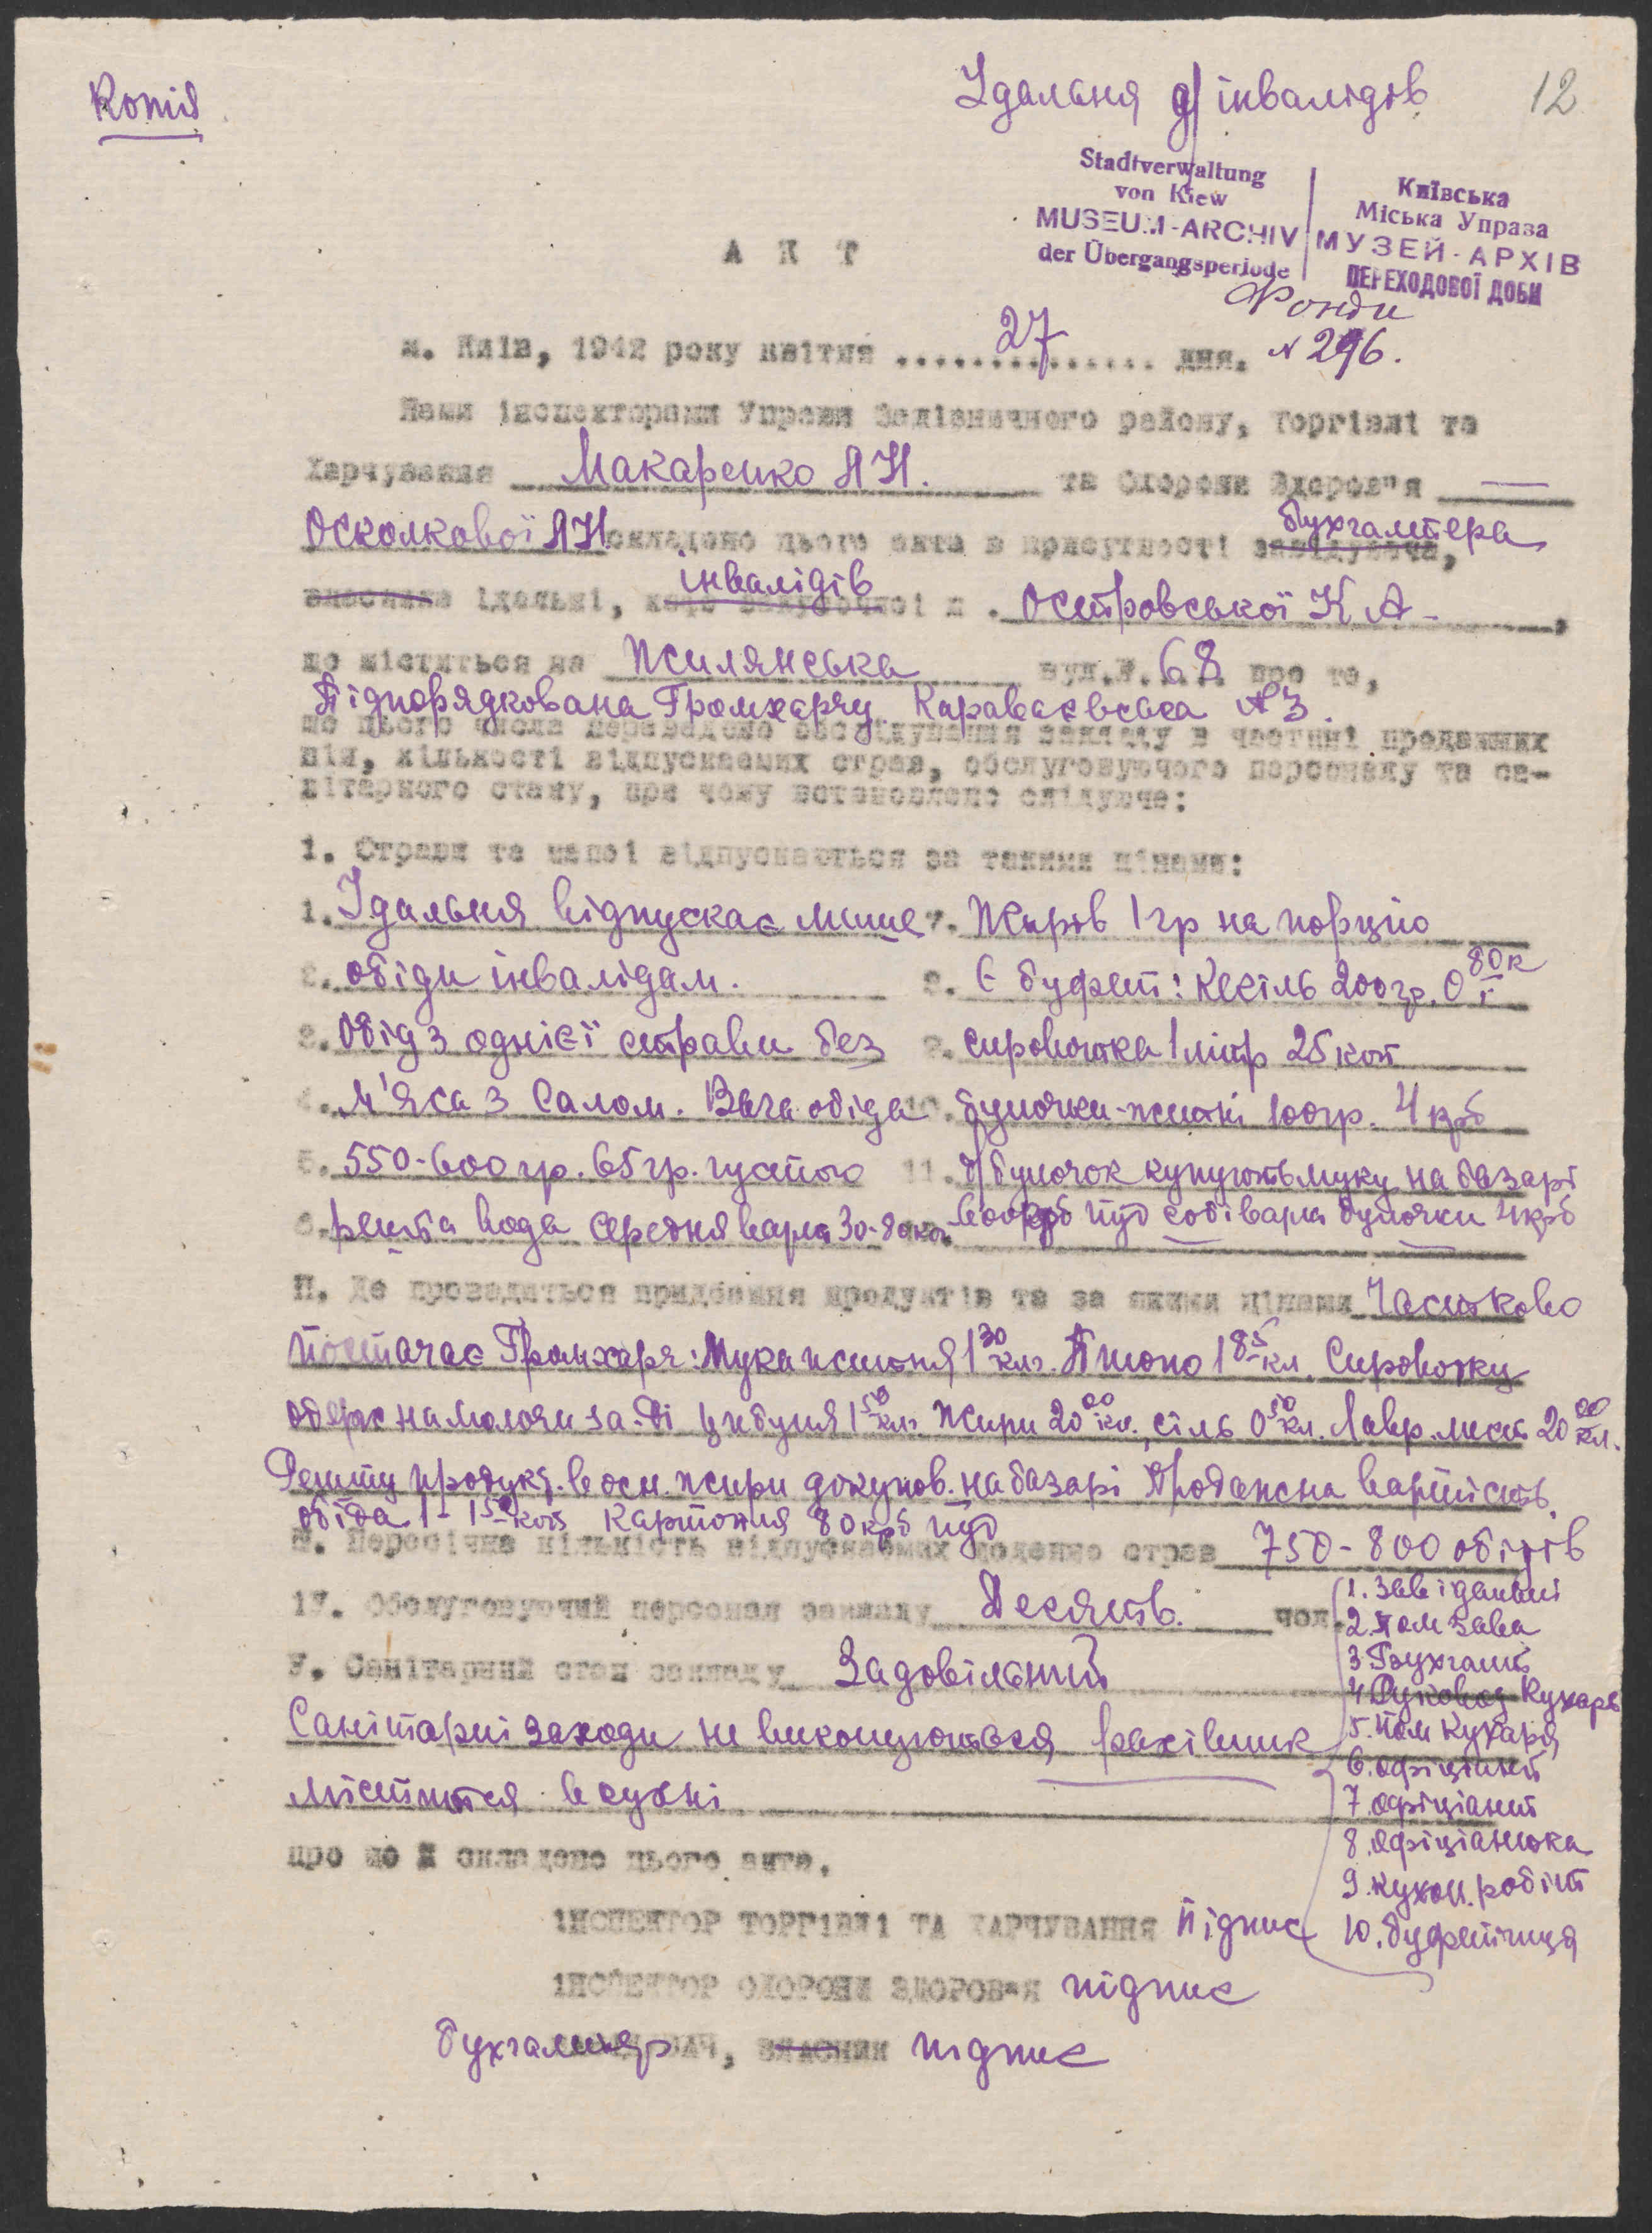 Копія
Їдальня д/інвалідів
12
Stadtverwaltung
von Kiew
MUSEUM-ARCHIV
der Übergangsperiode
Київська
Міська Управа
МУЗЕЙ-АРХІВ
ПЕРЕХОДОВОЇ ДОБИ
Фонди
А К Т
м. Київ, 1942 року квітня .... 27 .... дня. № 296.
Нами інспекторами Управи Залізничного району, Торгівлі та
Харчування Макаренко Я Н. та Охорони Здоров"я —
Осколкової Я Н складено цього акта в присутності завідувача, бухгалтера
власника їдальні, інвалідів Островської К А -,
що міститься на Жилянська вул.№. 68 про те,
Підпорядкована Громхарчу Караваєвська № 3.
що цього числа переведено обслідування закладу в частині продажних
цін, кількості відпускаемих страв, обслуговуючого персоналу та са-
нітарного стану, при чому встановлено слідуюче:
1. Страви та напої відпускаються за такими цінами:
1. Їдальня відпускає лише
2. обіди інвалідам.
3. Обід з однієї страви без
4. М'яса з Салом. Вага обіда
5. 550-600 гр. 65 гр. густого
6. решта вода середня варт 30-80 коп.
7. Жирів 1 гр на порцію
8. Є буфет: Кисіль 200 гр. 0 80 к
9. сироватка 1 літр 25 коп
10. булочки-житні 100 гр. 4 крб
11. д/булочок купують муку на базарі
600 крб пуд собіварт булочки 4 крб
П. Де проводиться придбання продуктів та за якими цінами Частково
постачає Громхарч: Мука житня 1 30 клг. Пшоно 1 85 кл. Сироватку
цибуля 1 50 клг. Жири 20 00 кл., сіль 0 50 кл. Лавр. лист 20 00 кл.
Решту продукт. в осн. жири докупов. на базарі Продажна вартість
обіда 1 - 1 50 коп Картопля 80 крб пуд
Ш. Пересічна кількість відпускаемих щоденно страв 750 - 800 обідів
1У. Обслуговуючий персонал закладу Десять. чол.
1. Зав їдальні
2. Пом Зава
3 Бухгалт
4 Руковод Кухарь
5. Пом Кухаря
6. офіціант
7. офіціант
8. офіціантка
9. кухон. робіт
10. буфетчиця
У. Санітарний стан закладу Задовільний
Санітарні заходи не виконуються рахівник
міститься в кухні
про що й складено цього акта.
ІНСПЕКТОР ТОРГІВЛІ ТА ХАРЧУВАННЯ Підпис
ІНСПЕКТОР ОХОРОНИ ЗДОРОВ"Я підпис
бухгалтер, ВЛАСНИК підпис